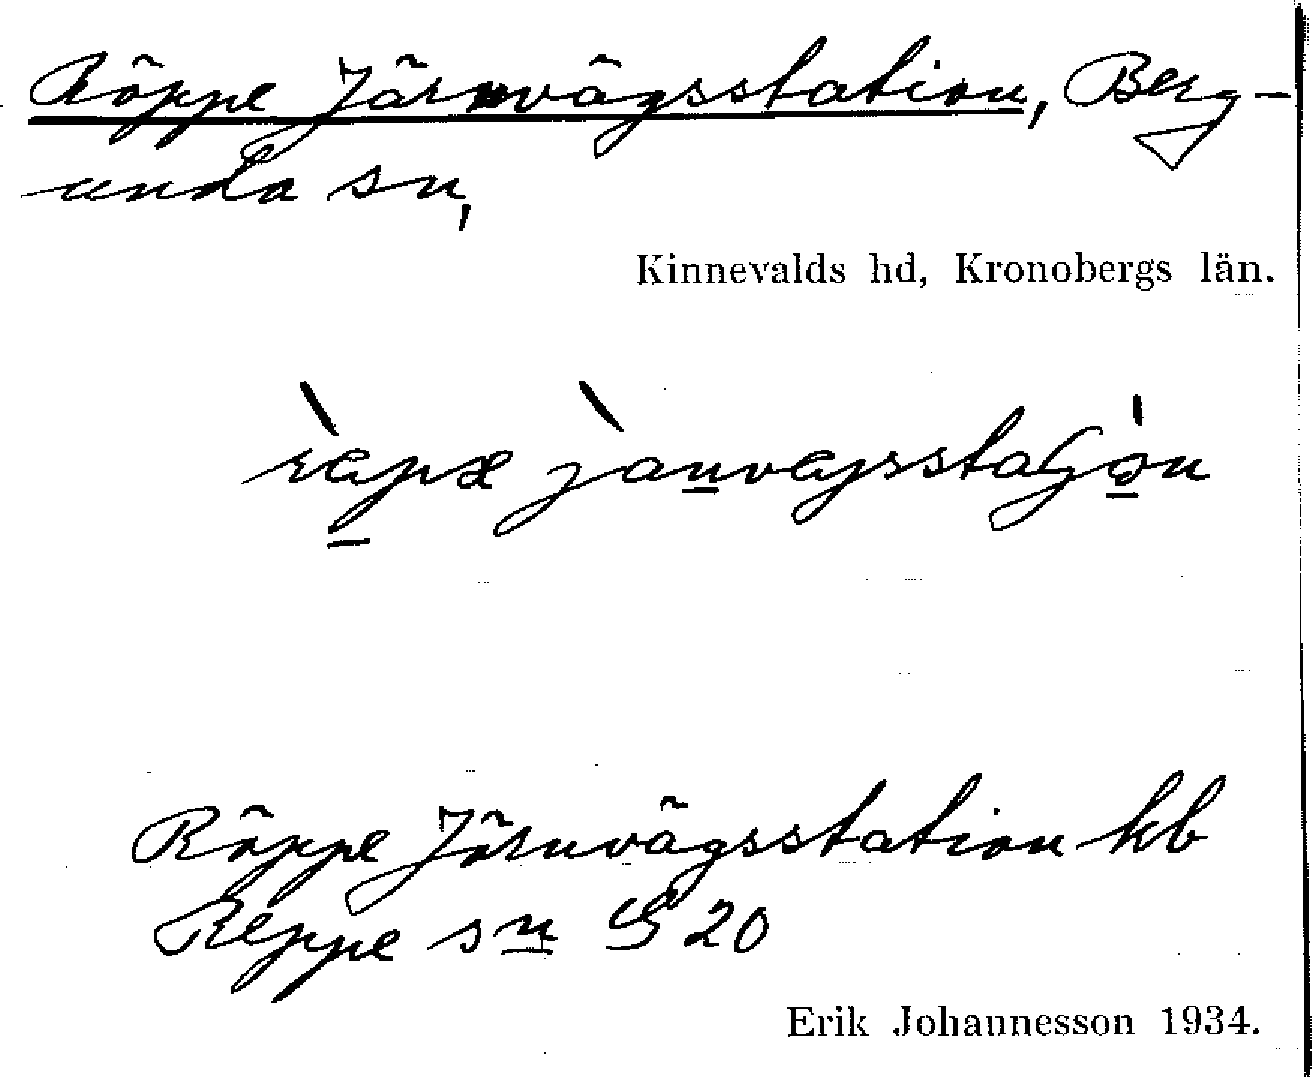 Röppe Järnvägsstation, Berg-
unda sn,
Kinnevalds hd, Kronobergs län.
Röppe Järnvägsstation kb
Reppe sn 20
Erik Johannesson 1934.